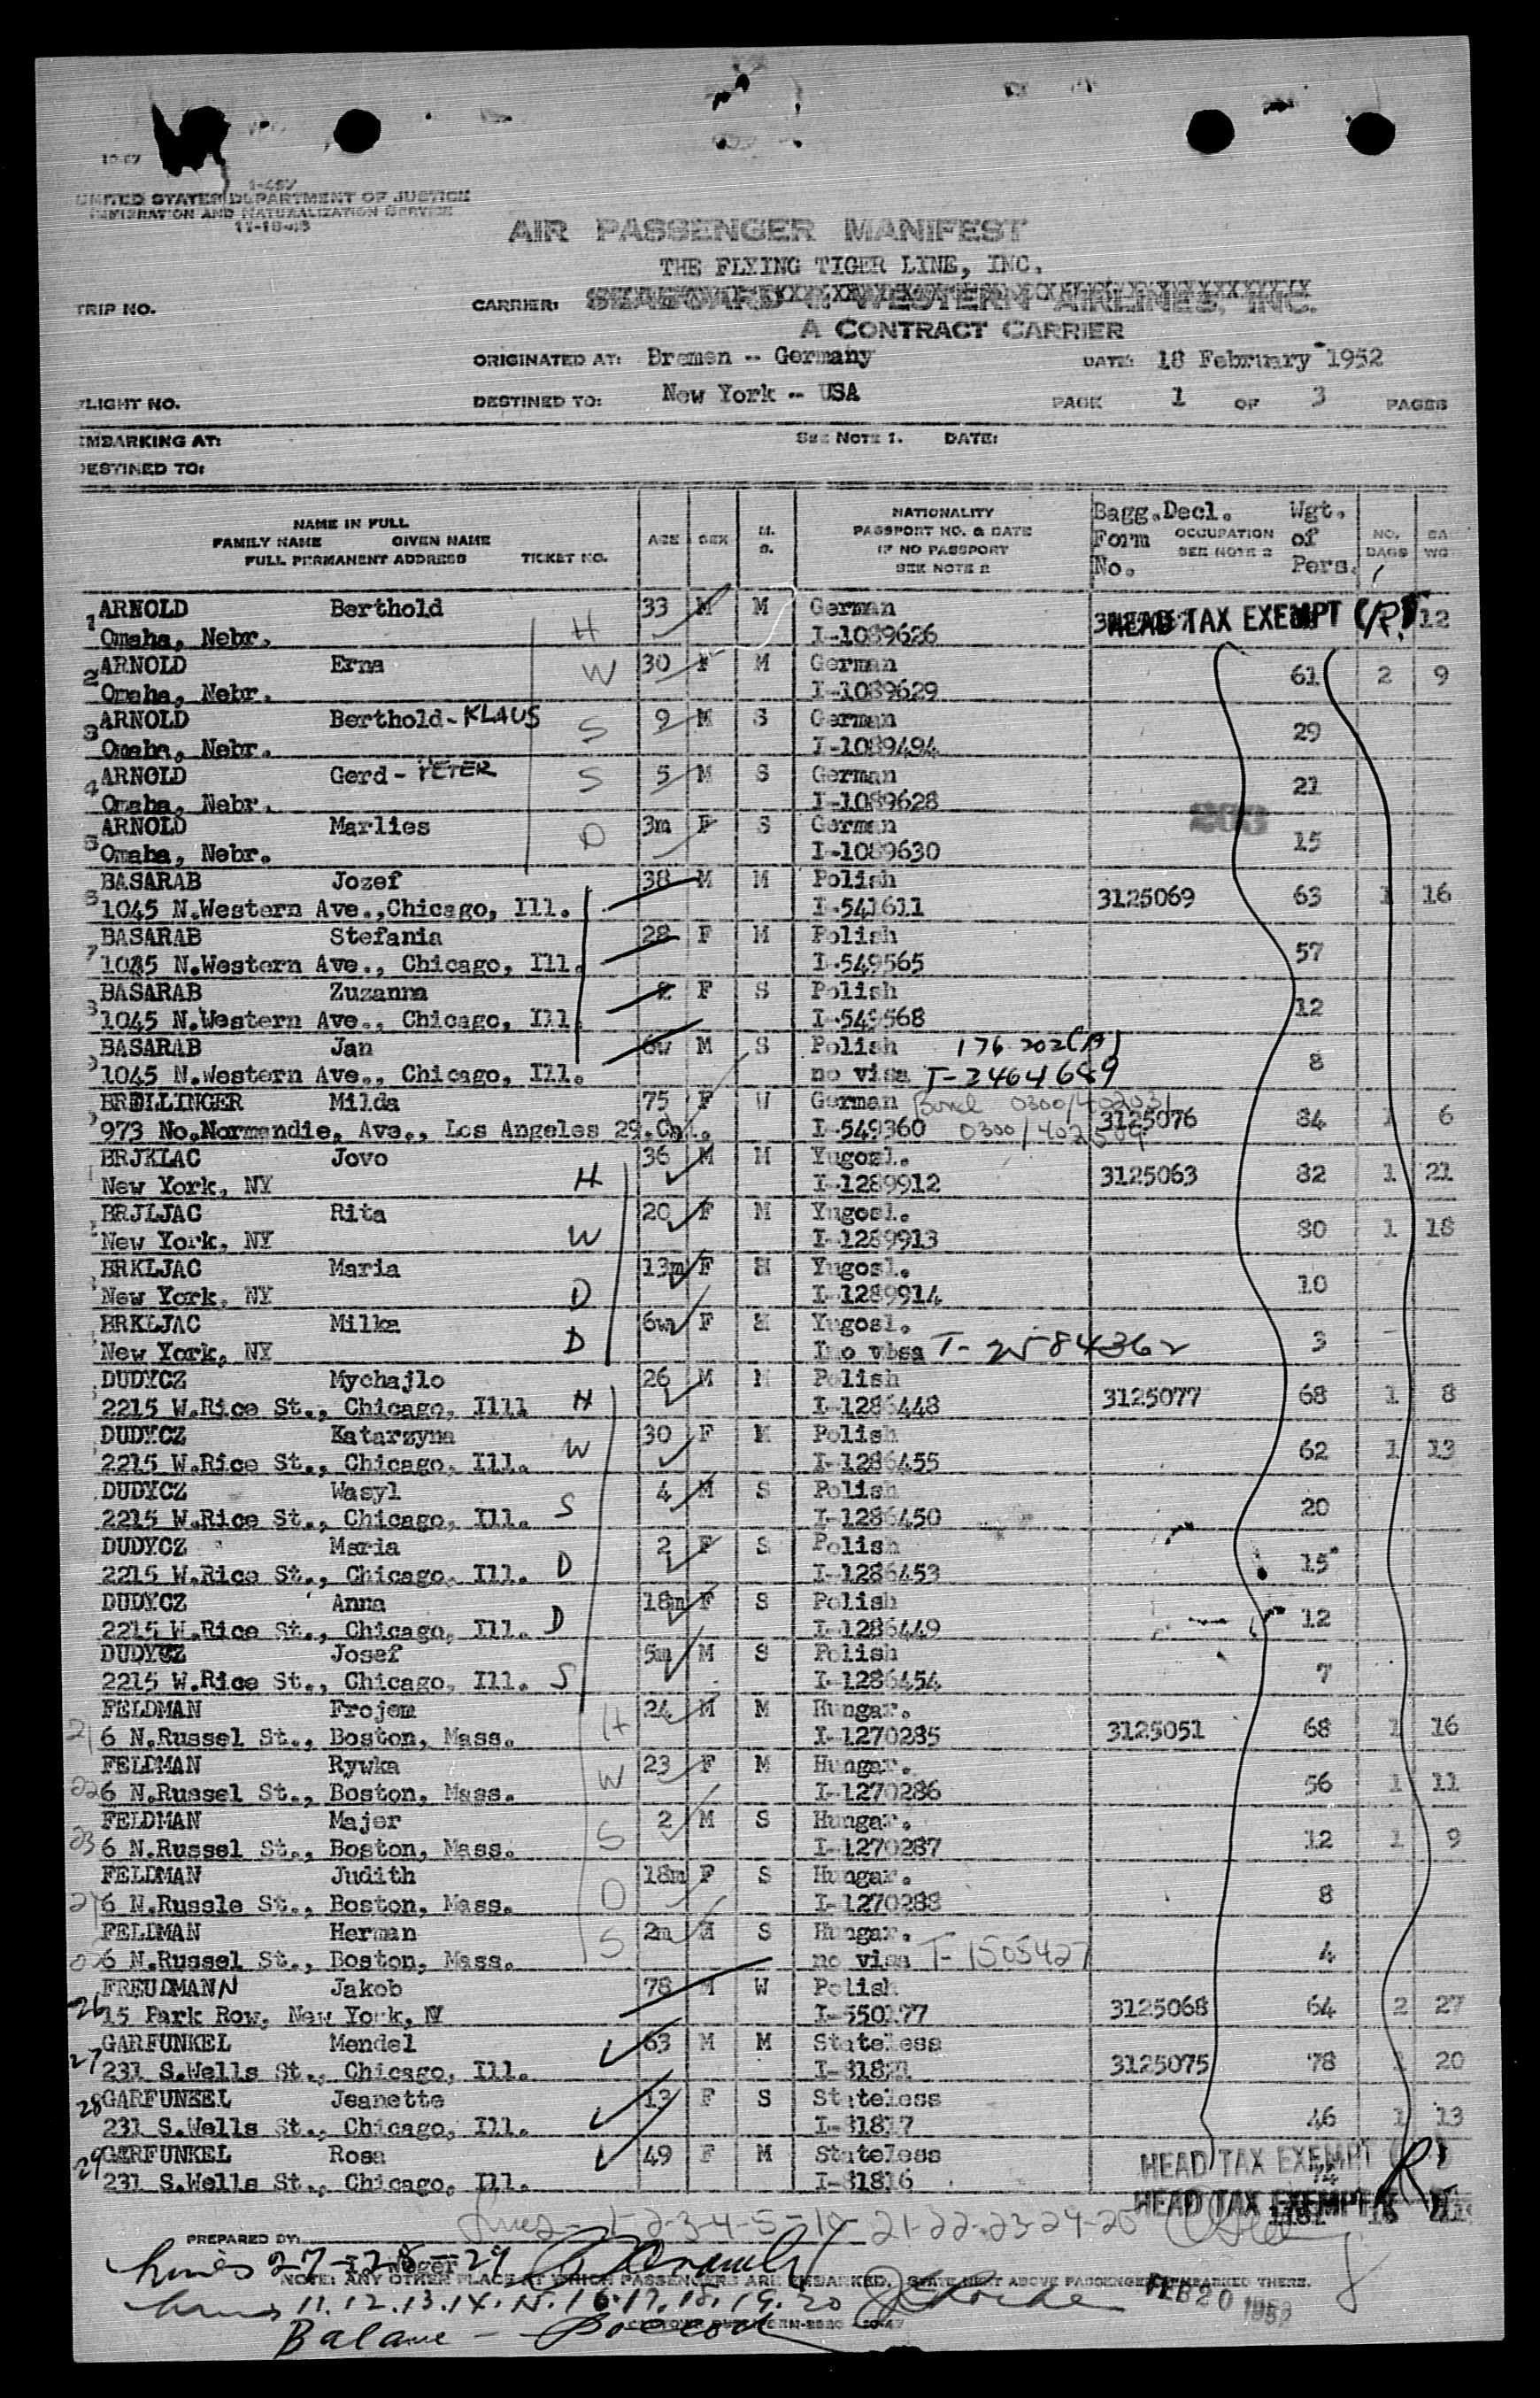 1-457
UNITED STATES DEPARTMENT OF JUSTICE
IMMIGRATION AND NATURALIZATION SERVICE
AIR PASSENGER MANIFEST
THE FLYING TIGER LINE, INC.
TRIP NO. CARRIER: SEABOARD & WESTERN AIRLINES, INC.
A CONTRACT CARRIER
ORIGINATED AT: Bremen -- Germany DATE: 18 February 1952
FLIGHT NO. DESTINED TO: New York -- USA PAGE 1 OF 3 PAGES
EMBARKING AT: SEE NOTE 1. DATE:
DESTINED TO:
NAME IN FULL FAMILY NAME GIVEN NAME FULL PERMANENT ADDRESS TICKET NO. AGE SEX M. S. NATIONALITY PASSPORT NO. & DATE IF NO PASSPORT SEE NOTE 2 Bagg.Decl. Form No. OCCUPATION SEE NOTE 2 Wgt. of Pers. NO. BAGS BA WG
1 ARNOLD Berthold 33 M M German HEAD TAX EXEMPT (R) 12
Omaha, Nebr. H I-1089626
2 ARNOLD Erna W 30 F M German 61 2 9
Omaha, Nebr. I-1089629
3 ARNOLD Berthold-KLAUS S 9 M S German 29
Omaha, Nebr. I-1089494
4 ARNOLD Gerd - PETER S 5 M S German 21
Omaha, Nebr. I-1089628
5 ARNOLD Marlies D 3m F S German 15
Omaha, Nebr. I-1089630
BASARAB Jozef 38 M M Polish 3125069 63 1 16
1045 N.Western Ave.,Chicago, Ill. I-541611
7 BASARAB Stefania 28 F M Polish 57
1045 N.Western Ave., Chicago, Ill. I-549565
BASARAB Zuzanna 2 F S Polish 12
1045 N.Western Ave., Chicago, Ill. I-549568
BASARAB Jan 6w M S Polish 176-202(A) 8
1045 N.Western Ave., Chicago, Ill. no visa T-2464689
BREILLINGER Milda 75 F W German 3125076 84 1 6
973 No.Normandie, Ave., Los Angeles 29.Cal. I-549360
BRJKLAC Jovo 36 M M Yugosl. 3125063 82 1 21
New York, NY H I-1289912
BRJLJAC Rita 20 F M Yugosl. 80 1 18
New York, NY W I-1289913
BRKLJAC Maria 13m F Yugosl. 10
New York, NY D I-1289914
BRKLJAC Milka 6w F Yugosl. 3
New York, NY D no visa T-2584362
DUDYCZ Mychajlo 26 M M Polish 3125077 68 1 8
2215 W.Rice St., Chicago, Illl H I-1286448
DUDYCZ Katarzyna 30 F M Polish 62 1 13
2215 W.Rice St., Chicago, Ill. W I-1286455
DUDYCZ Wasyl 4 M S Polish 20
2215 W.Rice St., Chicago, Ill. S I-1286450
DUDYCZ Maria 2 F S Polish 15
2215 W.Rice St., Chicago, Ill. D I-1286453
DUDYCZ Anna 18m F S Polish 12
2215 W.Rice St., Chicago, Ill. D I-1286449
DUDYCZ Josef 5m M S Polish 7
2215 W.Rice St., Chicago, Ill. S I-1286454
FELDMAN Frojem 24 M M Hungar. 3125051 68 1 16
21 6 N.Russel St., Boston, Mass. H I-1270285
FELDMAN Rywka 23 F M Hungar. 56 1 11
22 6 N.Russel St., Boston, Mass. W I-1270286
FELDMAN Majer 2 M S Hungar. 12 1 9
23 6 N.Russel St., Boston, Mass. S I-1270287
FELDMAN Judith 18m F S Hungar. 8
24 6 N.Russle St., Boston, Mass. D I-1270288
FELDMAN Herman 2m M S Hungar. 4
6 N.Russel St., Boston, Mass. S no visa T-1505427
FREUDMANN Jakob 78 M W Polish 3125068 64 2 27
26 15 Park Row, New York, N I-550177
GARFUNKEL Mendel 63 M M Stateless 3125075 78 20
27 231 S.Wells St., Chicago, Ill. I-81821
28 GARFUNKEL Jeanette 13 F S Stateless 46 1 13
231 S.Wells St., Chicago, Ill. I-81817
29 GARFUNKEL Rosa 49 F M Stateless HEAD TAX EXEMPT (R)
231 S.Wells St., Chicago, Ill. I-81816
HEAD TAX EXEMPT
Lines - 1-2-3-4-5-10-21-22-23-24-25
PREPARED BY:
Lines 27-28-29
NOTE: ANY OTHER PLACE AT WHICH PASSENGERS ARE EMBARKED, STATE NEXT ABOVE PASSENGERS EMBARKED THERE.
Lines 11.12.13.14.15.16.17.18.19.20
FEB 20 1952
Balance -